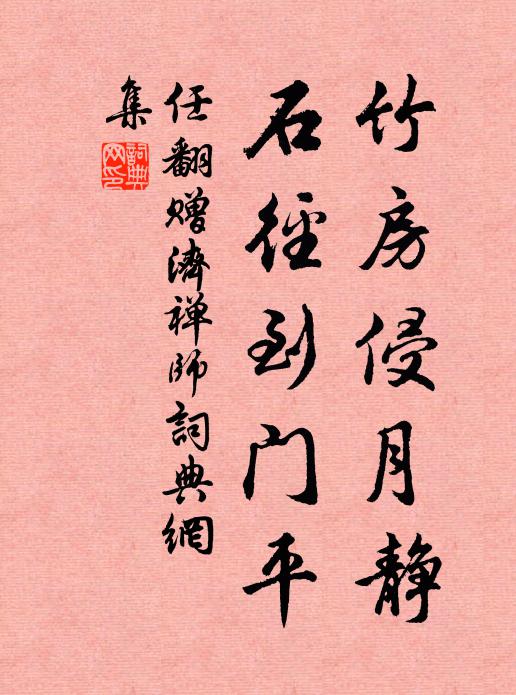 竹房侵月静
石径到门平
任翻赠济禅师詞典網
集
詞典
网印